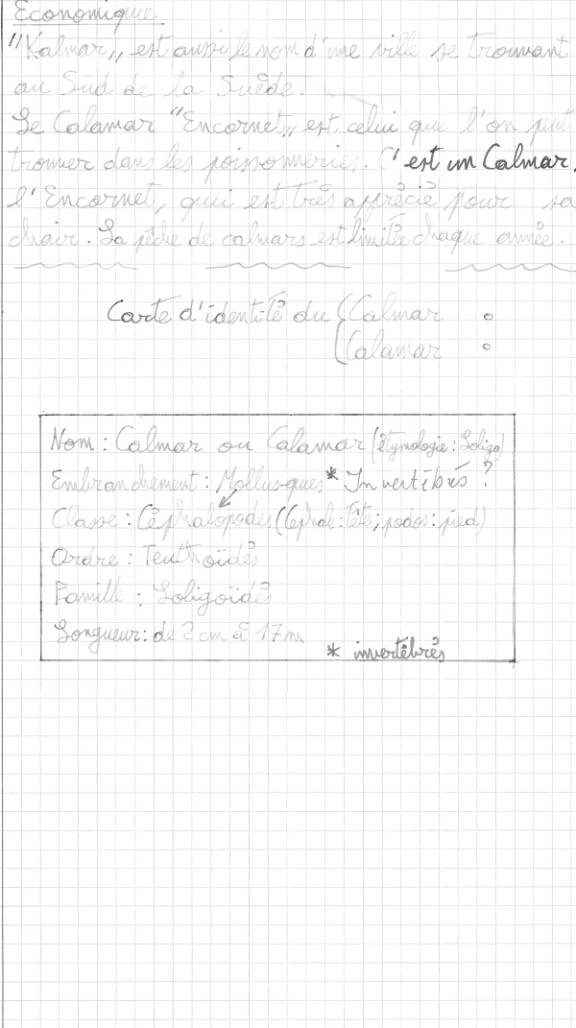 Economique.
"Kalmar„ est aussi le nom d'une ville se trouvant
au Sud de la Suède.
Le Calamar "Encornet„ est celui que l'on peut
trouver dans les poissonneries. C'est un Calmar,
l'Encornet, qui est très apprécié pour sa
chair. La pêche de calmars est limitée chaque année.
Carte d'identité du (Calmar :
(Calamar :
Nom : Calmar ou Calamar (étymologie : Loligo)
Embranchement : Mollusques * Invertébrés ?
Classe : Céphalopodes (Céphal : tête ; podos : pied)
Ordre : Teuthoïdés
Famille : Loligoïdés
Longueur : de 2 cm à 17 m
* invertébrés